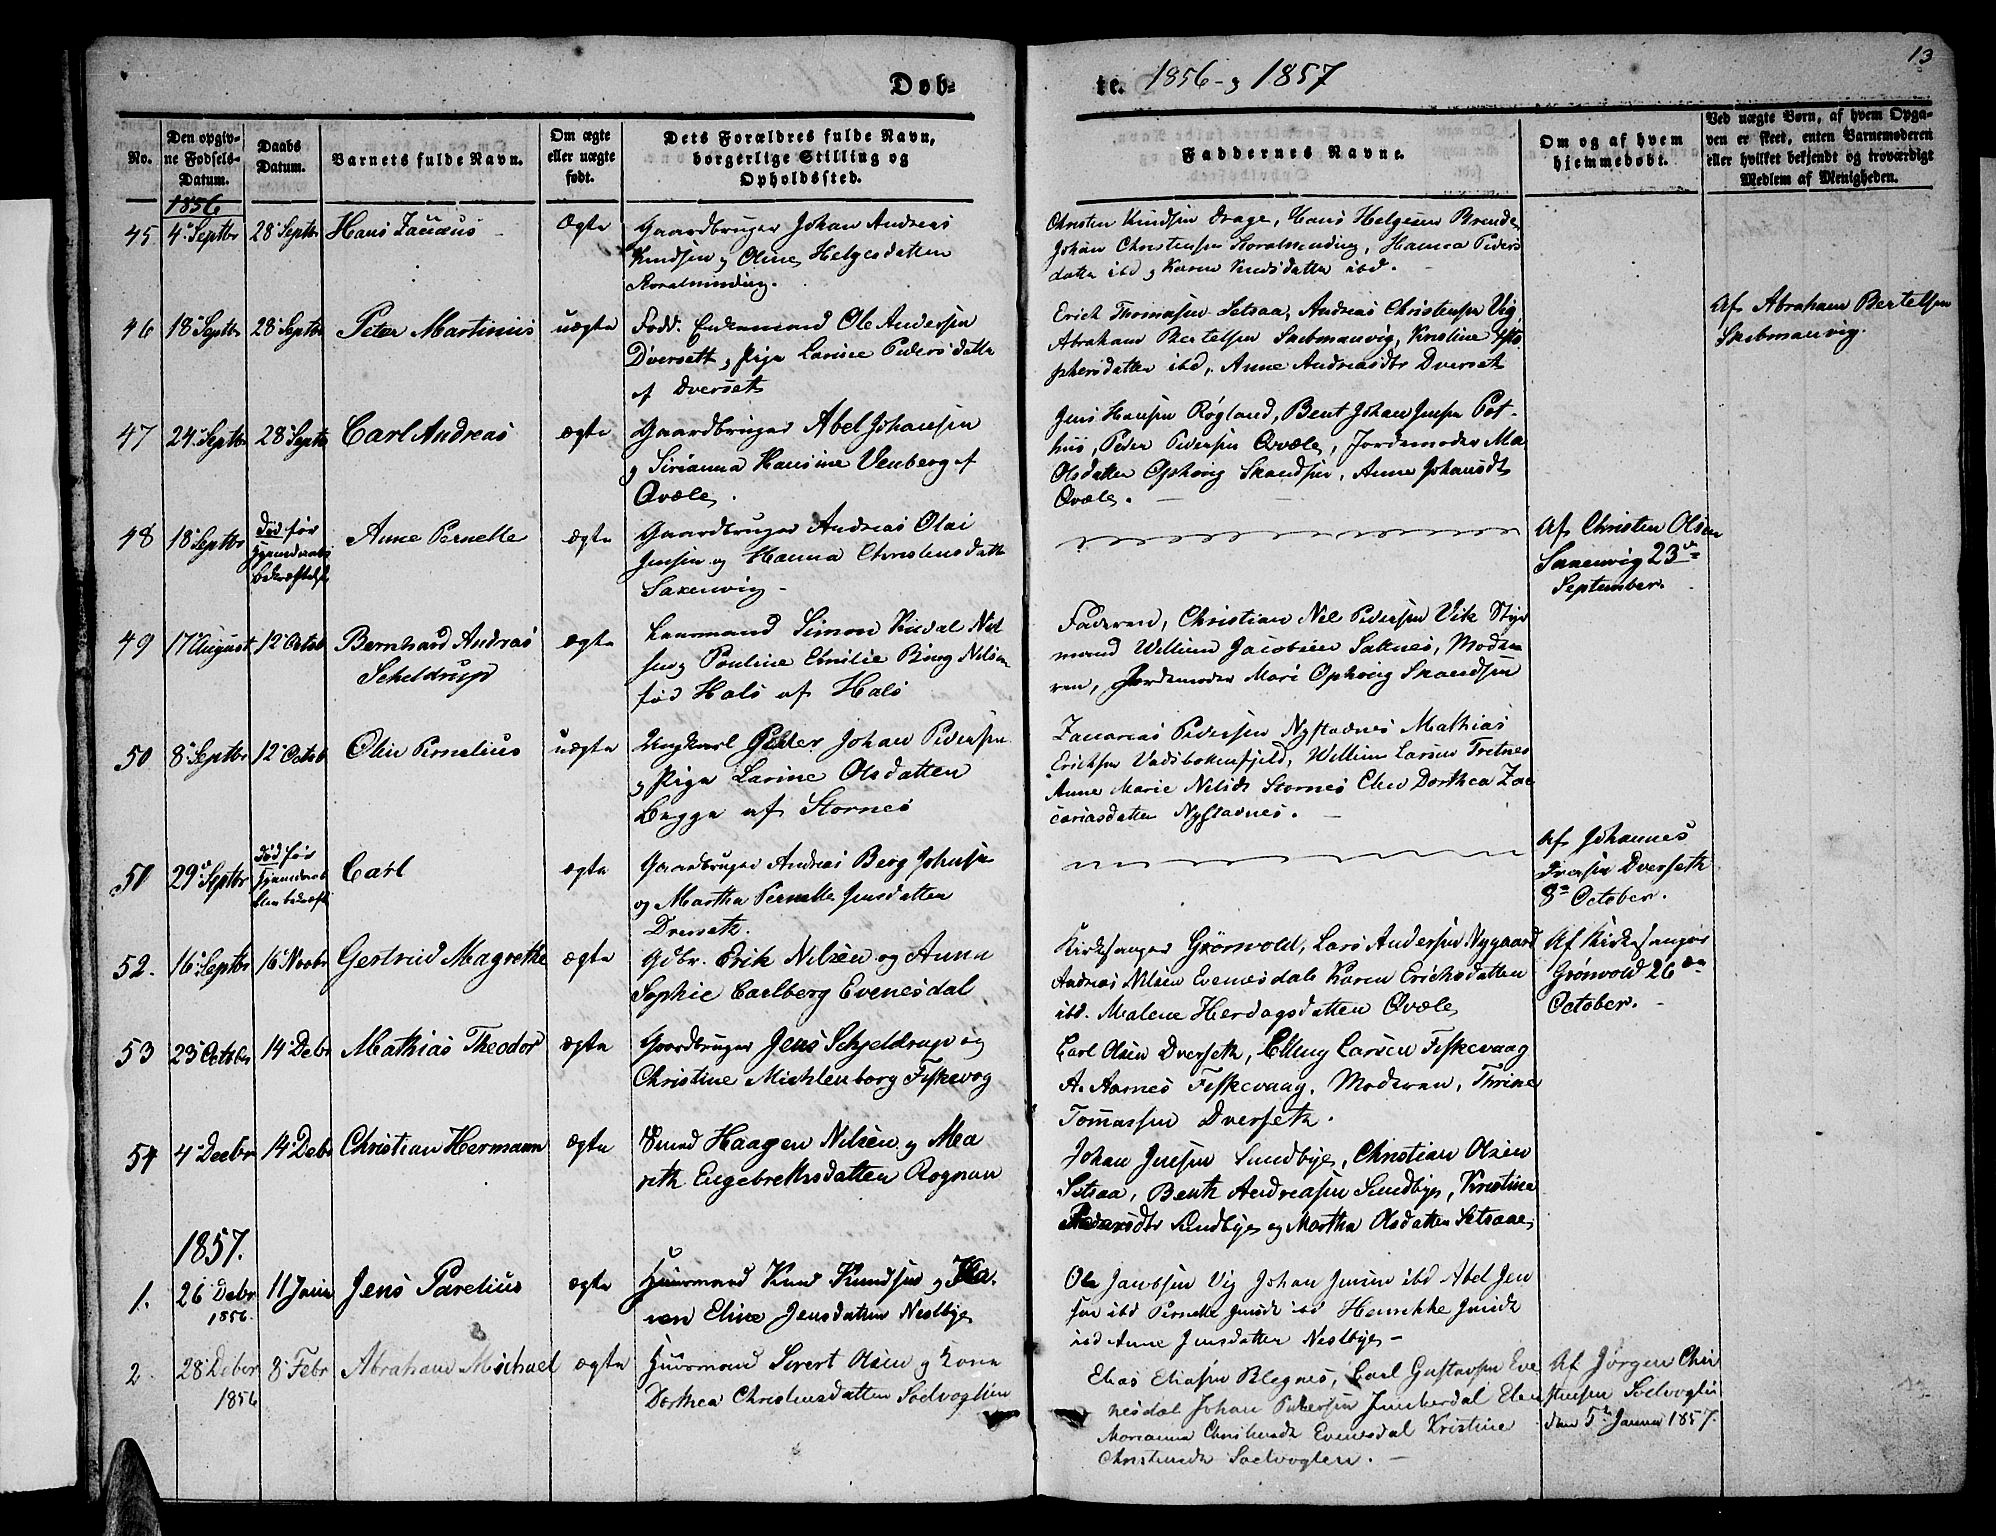 13
Døb- te. 1856 og 1857
No.
Den opgiv-
ne Fødsels-
Datum.
Daabs
Datum.
Barnets fulde Navn.
Om ægte
eller uægte
født.
Dets Forældres fulde Navn,
borgerlige Stilling og
Opholdssted.
Faddernes Navne.
Om og af hvem
hjemmedøbt.
Ved uægte Børn, af hvem Opga-
ven er skeet, enten Barnemoderen
eller hvilket bekjendt og troværdigt
Medlem af Menigheden.
1856
45 4 Septbr 28 Septbr Hans Zaueus Ægte
Gaardbruger Johan Andreas
Knudsen og Oline Helgesdatter
Storalminding.
Christen Knudsen Drage, Hans Helgesen Brende
Johan Christensen Storalminding, Hanna Peders
datter ibd og Karen Knudsdatter ibd.
46 18 Septbr 28 Septbr Peter Martinus uægte
Fadd. Enkemand Ole Andersen
Dverset og Pige Larine Pedersdatter
af Dverset
Erich Thomasen Setsaa, Andreas Christensen Vig
Abraham Bertelsen Saxenvig, Kristine
phersdatter ibd, Anne Andreasdtr Dverset
Af Abraham Bertelsen
47 24 Septbr 28 Septbr Carl Andreas ægte
Gaardbruger Abel Johansen
og Sirianna Hansine Venberg af
Qvæle.
Jens Hansen Røgland, Bent Johan Jensen Pot-
hus, Peder Pedersen Qvæle, Jordemoder Ma
Olsdatter Ophvig Skandsen, Anne Johansdt
Qvæle.
48 18 Septbr død før Anne Pernelle ægte
Gaardbruger Andreas Olai
Jensen og Hanna Christensdatter
Saxenvig
Af Christen Olsen
Saxenvig 23de
September.
49 17 August 12 Octob Bernhard Andreas
Scheldrup ægte
Leensmand Simon Kildal Niel
sen og Pauline Emilie Bing Nilsen
fød Hals af Hals
Faderen, Christian Nel Pedersen Vik Styr
mand Willium Jacobsen Saltnes, Moder
ren, Jordemoder Mari Ophvig Skandsen
50 8 Septbr 12 Octob Olin Pernelius uægte
Ungkarl Peder Johan Pedersen
og Pige Larine Olsdatter
Bugge af Stornes
Zacarias Pedersen Nystadnes Mathias
Ericksen Vadsbakenfjeld, Willium Larsen Tretnes
Anne Marie Nilsdt Stornes Elen Dorthea Zac
cariasdatter Nystadnes.
51 29 Septbr død før Carl ægte
Gaardbruger Andreas Berg Johnsen
og Martha Pernelle Jensdatter
Dverseth.
Af Johannes
Iversen Dverseth
8de October.
52. 16 Septbr 16 Novbr Gertrud Magrethe ægte
Gdbr. Erik Nilsen og Anna
Sophie Carlberg Evenesdal
Kirkesanger Grønvold, Lars Andersen Nygaard
Andreas Nilsen Evenesdal Karen Erichsdatter
ibd. Malene Herdagsdatter Qvæle
Af Kirkesanger
Grønvold 26de
October.
53 23 October 14 Debr Mathias Theodor ægte
Gaardbruger Jens Schjeldrup og
Christine Michlenborg Fiskevog
Carl Olsen Dverseth, Elling Larsen Fiskevaag
A. Aarnes Fiskevaag, Moderen, Thrine
Tomassen Dverseth.
54 4 Decbr 14 Debr Christian Hermann ægte
Smed Haagen Nilsen og Ma
reth Engebrethsdatter Rognan
Johan Jensen Sundbye, Christian Olsen
Setsaa, Benth Andreasen Sundbye, Kristine
Pedersdtr Sundbye og Martha Olsdatter Setsaae
1857.
1. 26 Debr 11 Janu Jens Parelius ægte
1856.
Huusmand Knud Knudsen og Ka-
ren Eline Jensdatter Nestbye
Ole Jacobsen Vig Johan Jensen ibd Abel Jen
sen ibd Pernelle Jensdt ibd Henrikke Jensdt
ibd Anne Jensdatter Nestbye
2. 28 Decber 8 Febr Abraham Michael ægte
1856
Huusmand Sivert Olsen og Kone
Dorthea Christensdatter Solvogtlien
Elias Eliasen Blegnes, Carl Gustavsen Eve
nesdal Johan Pedersen Junkerdal Elen
Marianna Christensdt Evenesdal Kristine
Christensdt Soelvogtlien.
Af Jørgen Chri
stensen Soelvogtli
den 5te Januar 1857.